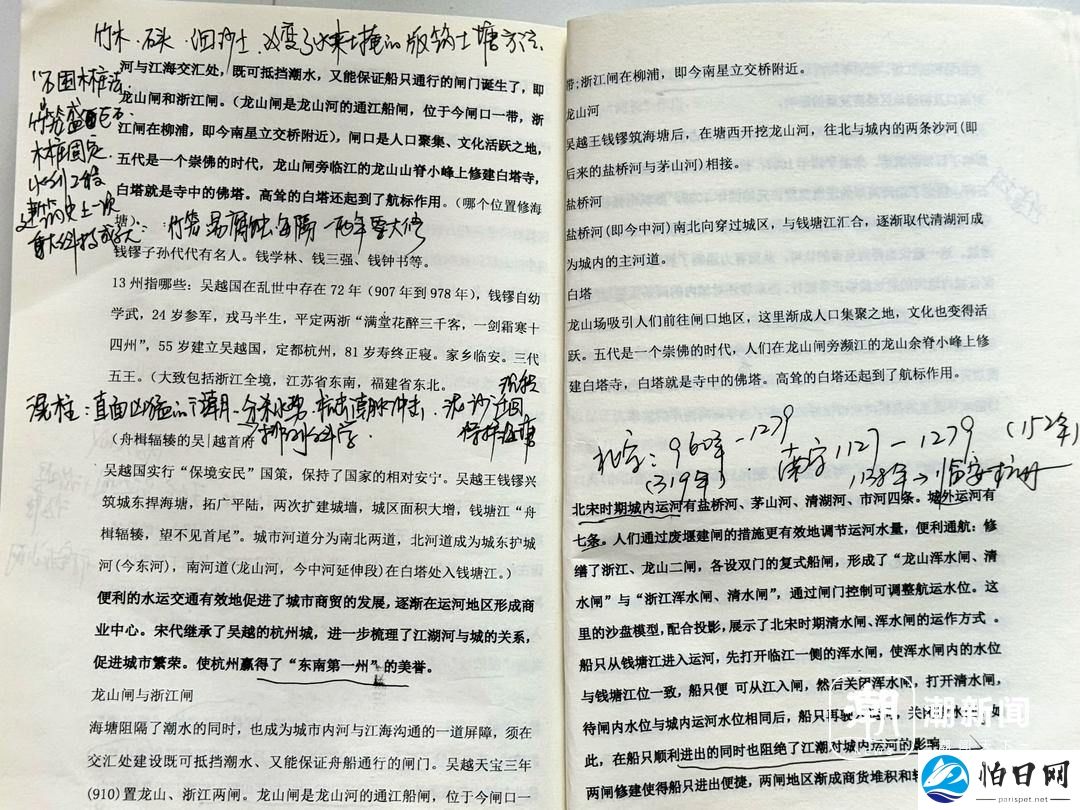 竹木、石头、泥沙土,改变了以来土掩的版筑土塘方法
"石囤木桩法:
竹笼盛巨石
木桩固定
水利工程
建筑史上一次
重大科技
河与江海交汇处,既可抵挡潮水,又能保证船只通行的闸门诞生了,即
龙山闸和浙江闸。(龙山闸是龙山河的通江船闸,位于今闸口一带,浙
江闸在柳浦,即今南星立交桥附近),闸口是人口聚集、文化活跃之地,
五代是一个崇佛的时代,龙山闸旁临江的龙山山脊小峰上修建白塔寺,
白塔就是寺中的佛塔。高耸的白塔还起到了航标作用。(哪个位置修海
塘):竹笼易腐蚀,每隔一两年要大修
钱镠子孙代代有名人。钱学林、钱三强、钱钟书等。
13州指哪些:吴越国在乱世中存在72年(907年到978年),钱镠自幼
学武,24岁参军,戎马半生,平定两浙“满堂花醉三千客,一剑霜寒十
四州”,55岁建立吴越国,定都杭州,81岁寿终正寝。家乡临安。三代
五王。(大致包括浙江全境,江苏省东南,福建省东北。
滉柱:直面凶猛的潮,分杀水势,抗击浪潮冲击,沉沙
排列科学.
保护海塘
(舟楫辐辏的吴|越首府
吴越国实行“保境安民”国策,保持了国家的相对安宁。吴越王钱镠兴
筑城东捍海塘,拓广平陆,两次扩建城墙,城区面积大增,钱塘江“舟
楫辐辏,望不见首尾”。城市河道分为南北两道,北河道成为城东护城
河(今东河),南河道(龙山河,今中河延伸段)在白塔处入钱塘江。)
便利的水运交通有效地促进了城市商贸的发展,逐渐在运河地区形成商
业中心。宋代继承了吴越的杭州城,进一步梳理了江湖河与城的关系,
促进城市繁荣。使杭州赢得了“东南第一州”的美誉。
龙山闸与浙江闸
海塘阻隔了潮水的同时,也成为城市内河与江海沟通的一道屏障,须在
交汇处建设既可抵挡潮水、又能保证船只通行的闸门。吴越天宝三年
(910)置龙山、浙江两闸。龙山闸是龙山河的通江船闸,位于今闸口一
带;浙江闸在柳浦,即今南星立交桥附近。
龙山河
吴越王钱镠筑海塘后,在塘西开挖龙山河,往北与城内的两条沙河(即
后来的盐桥河与茅山河)相接。
盐桥河
盐桥河(即今中河)南北向穿过城区,与钱塘江汇合,逐渐取代清湖河成
为城内的主河道。
白塔
龙山场吸引人们前往闸口地区,这里渐成人口集聚之地,文化也变得活
跃。五代是一个崇佛的时代,人们在龙山闸旁濒江的龙山余脊小峰上修
建白塔寺,白塔就是寺中的佛塔。高耸的白塔还起到了航标作用。
北宋:960年-1279
(319年)
南宋1127-1279(152年)
1138年→临安
北宋时期城内运河有盐桥河、茅山河、清湖河、市河四条。城外运河有
七条。人们通过废堰建闸的措施更有效地调节运河水量,便利通航:修
缮了浙江、龙山二闸,各设双门的复式船闸,形成了“龙山浑水闸、清
水闸”与“浙江浑水闸、清水闸”,通过闸门控制可调整航运水位。这
里的沙盘模型,配合投影,展示了北宋时期清水闸、浑水闸的运作方式 。
船只从钱塘江进入运河,先打开临江一侧的浑水闸,使浑水闸内的水位
与钱塘江位一致,船只便 可从江入闸,然后关闭浑水闸,打开清水闸,
待闸内水位与城内运河水位相同后,船只再驶 关闭 水 如
此,在船只顺利进出的同时也阻绝了江潮对城内运河的影响
两闸修建使得船只进出便捷,两闸地区渐成商货堆积和
潮新闻
怕日网
parispot.net